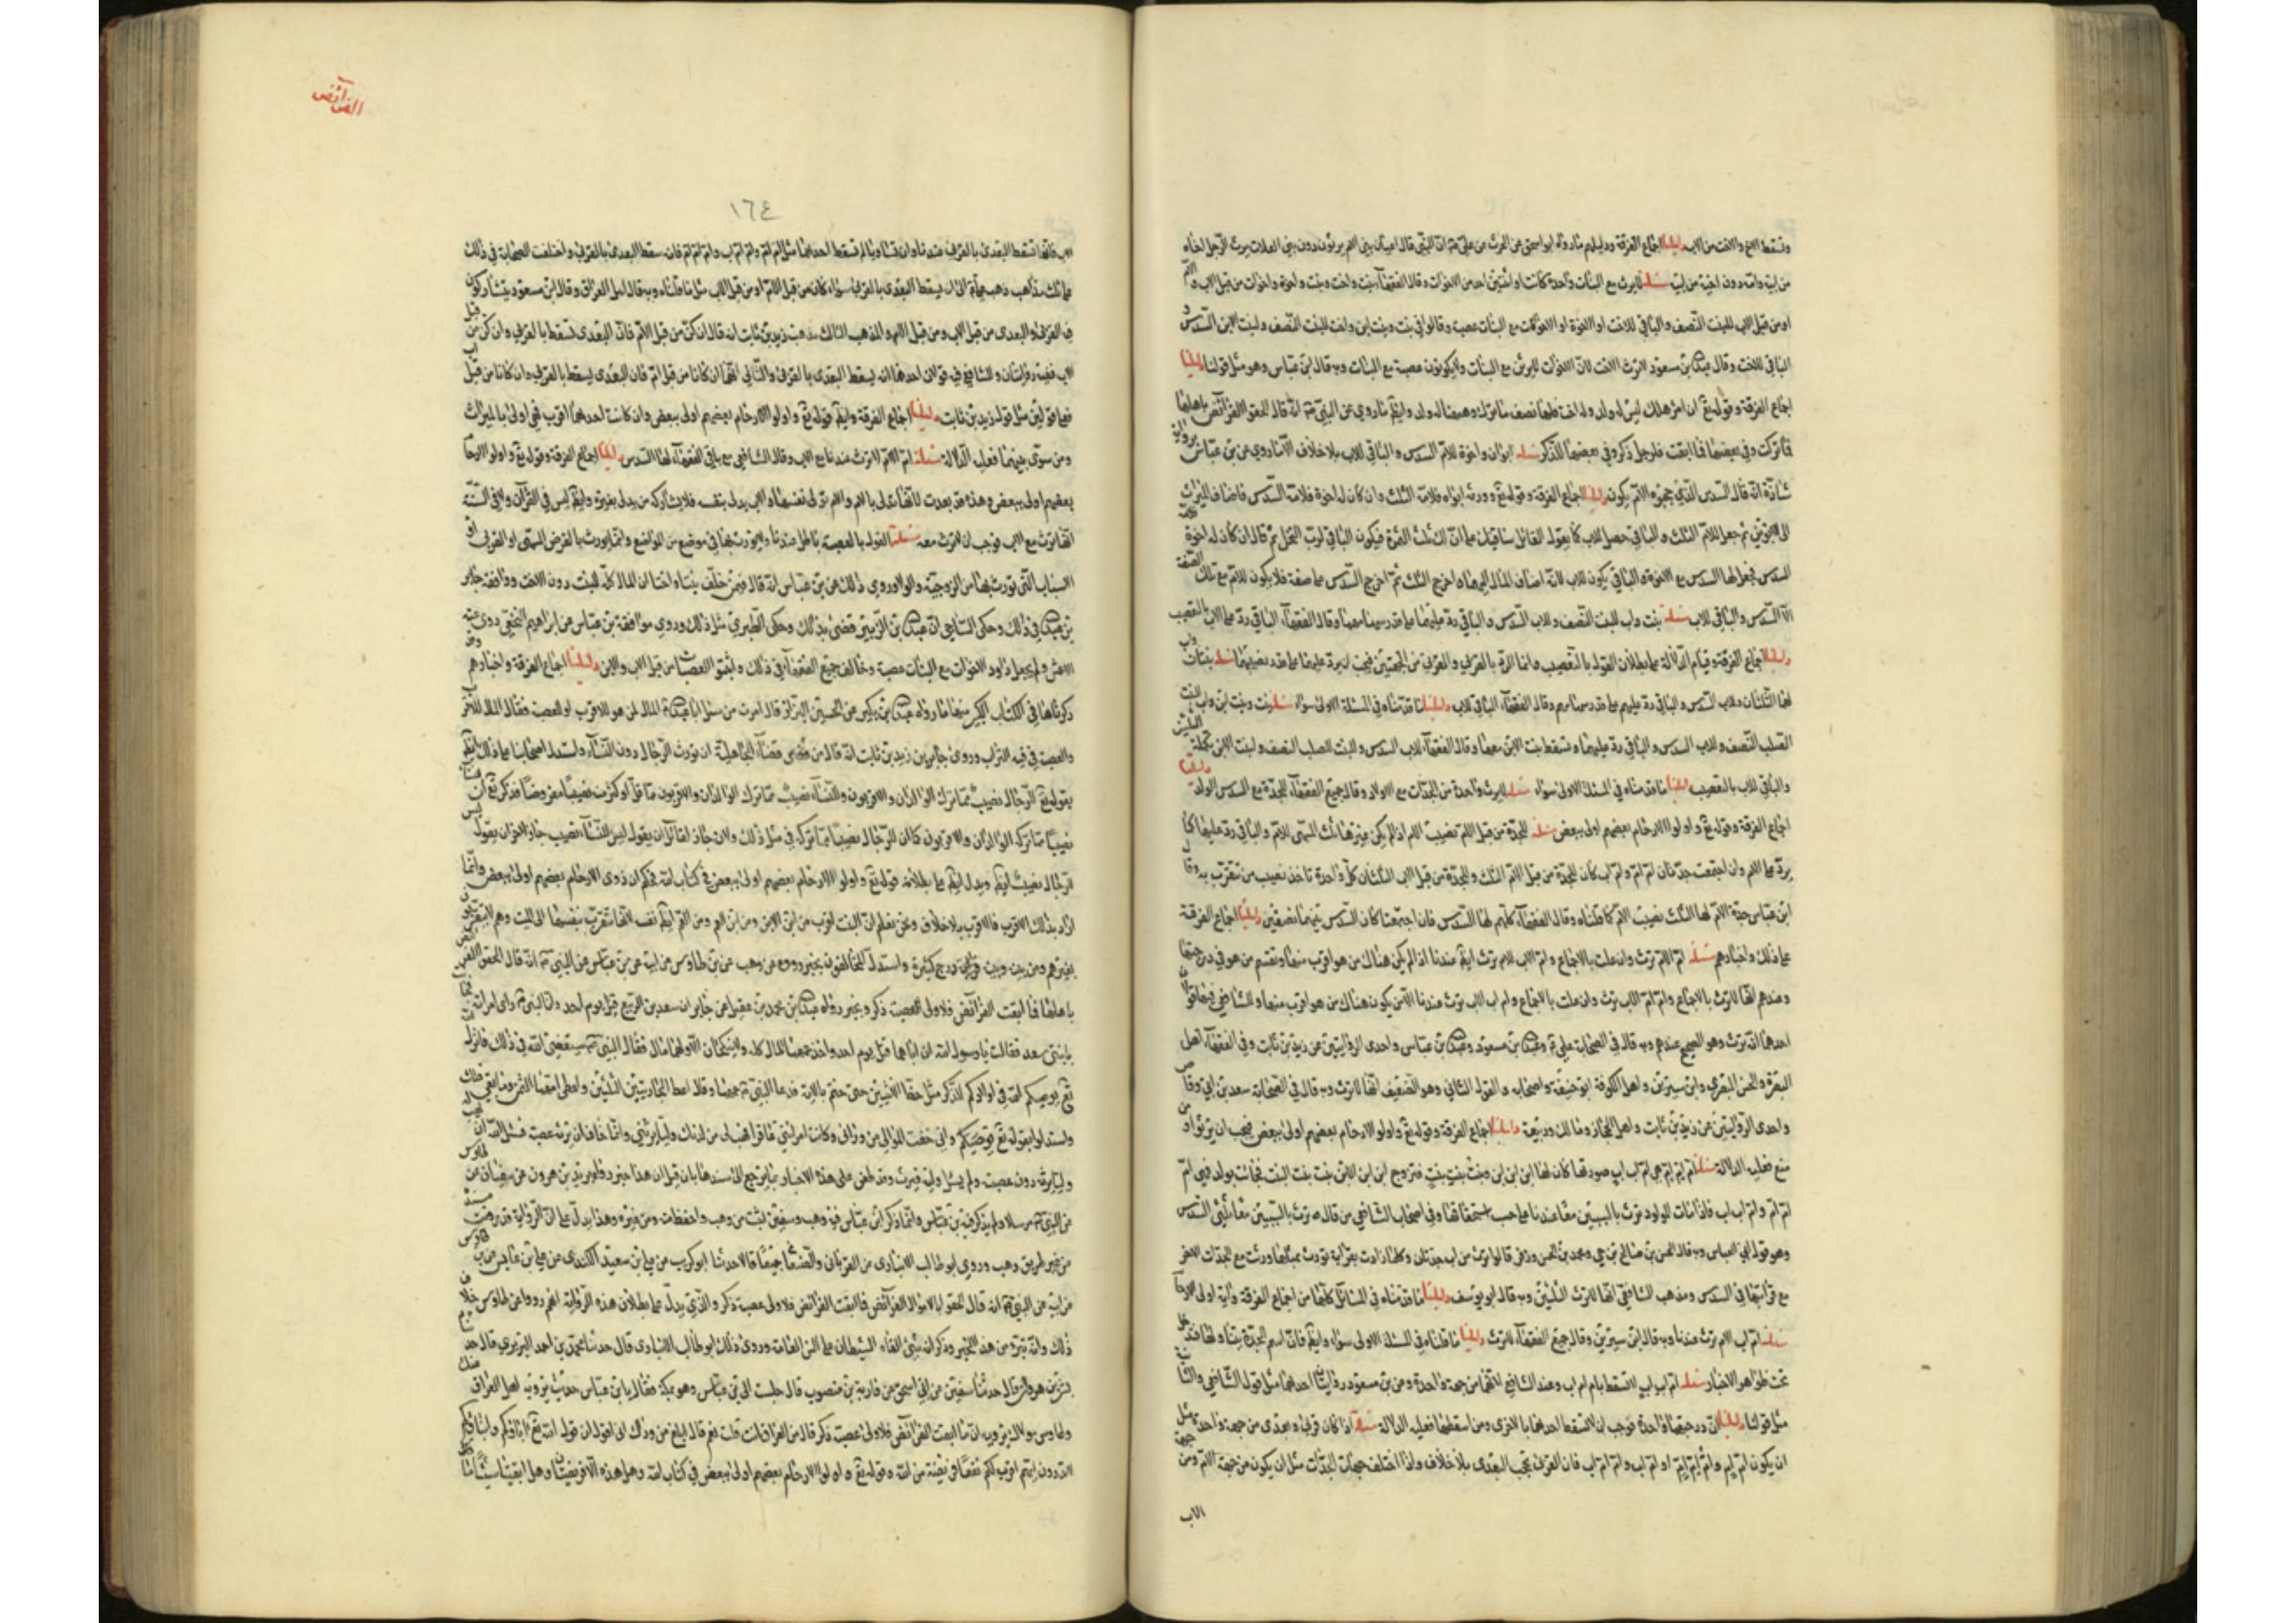 وتسقط الاخ والاخت من الاب دليلنا اجماع الفرقة ودليلهم ما رواه ابو اسحق عن الحرث عن علي ان النبي قال اعيان بني الام يرثون دون بني العلات يرث الرجل اخاه
من ابيه وامه دون اخيه من ابيه مسئلة لا يرث مع البنات واحدة كانت او اثنتين احد من الاخوات وقال الفقهاء بنت واخت وبنت واخوة واخوات من قبل الاب والام
او من قبل الاب للبنت النصف والباقي للاخت او الاخوة او الاخوات مع البنات عصبة وقالوا في بنت وبنت ابن واخت للبنت النصف ولبنت الابن السدس و
الباقي للاخت وقال عبد الله بن مسعود لا ترث الاخت لان الاخوات لا يرثن مع البنات ولا يكونون عصبة مع البنات وبه قال ابن عباس وهو مثل قولنا دليلنا
اجماع الفرقة وقوله تع ان امرؤ هلك ليس له ولد وله اخت فلها نصف ما ترك وهيهنا له ولد وايضا ما روي عن النبي انه قال الحقوا الفرائض باهلها
فما تركت وفي بعضها فما ابقت فلرجل ذكر وفي بعضها لذكر مسئلة ابوان واخوة للام السدس والباقي للاب بلا خلاف الا ما روي عن بن عباس برواية
شاذة انه قال السدس الذي حجبوه الام يكون دليلنا اجماع الفرقة وقوله تع وورثه ابواه فلامه الثلث وان كان له اخوة فلامه السدس فاضاف الميراث
الى الابوين ثم جعل للام الثلث والباقي حصل للاب كما يقول القائل ثم قال ان كان له اخوة فلامه
السدس فجعل لها السدس مع الاخوة والباقي يكون للاب لانه اضاف المال اليهما واخرج الثلث ثم اخرج السدس على صفة فلا يكون للام مع تلك الصفة
الا السدس والباقي للاب مسئلة بنت واب للبنت النصف وللاب السدس والباقي رد عليهما على قدر سهمامها وقال الفقهاء الباقي رد على الاب بالتعصيب
دليلنا اجماع الفرقة وقيام الدلالة على بطلان القول بالتعصيب وانما الرد بالقربى والقربى من الجهتين فيجب ان يرد عليهما على قدر نصيبهما مسئلة بنتان واب
لهما الثلثان وللاب السدس والباقي رد عليهم على قدر سهامهم وقال الفقهاء الباقي للاب دليلنا ما قدمناه في المسئلة الاولى سواء مسئلة بنت وبنت ابن واب لبنت
الصلب النصف وللاب السدس والباقي رد عليهما وتسقط بنت الابن معها وقال الفقهاء للاب السدس والبنت الصلب النصف ولبنت الابن تكملة الثلثين
والباقي للاب بالتعصيب دليلنا ما قدمناه في المسئلة الاولى سواء مسئلة لا يرث واحدة من الجدات مع الاولاد وقال جميع الفقهاء للجدة مع السدس الولد دليلنا
اجماع الفرقة وقوله تع واولوا الارحام بعضهم اولى ببعض مسئلة للجدة من قبل الام نصيب الام اذا لم يكن غيرها ثلث السهم للام والباقي رد عليها كما
يرد على الام وان اجتمعت جدتان ام ام وام اب كان للجدة من قبل الام الثلث وللجدة من قبل الاب الثلثان كل واحدة تاخذ نصيب من تتقرب به وقال
ابن عباس جدة الام لها الثلث نصيب الام كما قلناه وقال الفقهاء كلهم لها السدس فان اجتمعتا كان السدس بينهما نصفين دليلنا اجماع الفرقة
على ذلك واخبارهم مسئلة ام ام الام ترث وان علت بالاجماع وام اب الام ترث ايضا عندنا اذا لم يكن هناك من هو اقرب منها وتقسم من هو في درجتها
وعندهم انها لا ترث بالاجماع وام ام الاب ترث وان علت بالاجماع وام اب الاب ترث عندنا الا ان يكون هناك من هو اقرب منها وللشافعي فيها قولان
احدهما انه ترث وهو الصحيح عندهم وبه قال في الصحابة علي وعبد الله بن مسعود وعبد الله بن عباس واحدى الروايتين عن زيد بن ثابت وفي الفقهاء اهل
البصرة والحسن البصري وابن سيرين واهل الكوفة ابو حنيفة واصحابه والقول الثاني وهو الضعيف انها لا ترث وبه قال في الصحابة سعد بن ابي وقاص
واحدى الروايتين عن زيد بن ثابت واهل الحجاز ومالك وربيعة دليلنا اجماع الفرقة وقوله تع واولوا الارحام بعضهم اولى ببعض فيجب ان يرثوا ومن
منع فعليه الدلالة مسئلة ام ام ام هي ام اب اب صورتها كان لها ابن ابن ابن وبنت بنت بنت فتزوج ابن ابن الابن بنت بنت البنت فجائت بولد فهي ام
ام ام وام اب اب فاذا مات المولود ترث بالسببين معا عندنا على حسب استحقاقها وفي اصحاب الشافعي من قال ترث بالسببين معا ثلثي السدس
وهو قول ابي العباس وبه قال الحسن بن صالح بن حي ومحمد بن الحسن وزفر قالوا ترث من اب جدتان وكلما زادت بقرابة تورث بمثلها ورثت مع الجدات الاخر
مع قرابتها في السدس ومذهب الشافعي انها لا ترث الثلثين وبه قال ابو يوسف دليلنا ما قدمناه في المسائل كلها من اجماع الفرقة واية اولى الارحام
مسئلة ام اب الام ترث عندنا وبه قال ابن سيرين وقال جميع الفقهاء لا ترث دليلنا ما قلناه في المسئلة الاولى سواء وايضا فان اسم الجدة يتناولها فدخل
تحت ظواهر الاخبار مسئلة ام اب اب لا تسقط بام ام اب وعند الشافعي لانهما من جهة واحدة وعن بن مسعود روايتان احدهما مثل قول الشافعي والثانية
مثل قولنا دليلنا ان درجتهما واحدة فوجب ان لا تسقط احدهما بالاخرى ومن اسقطها فعليه الدلالة مسئلة اذا كان قربى وبعدى من جهة واحدة مثل
ان يكون ام ام وام ام ام او ام اب وام ام اب فان القربى تحجب البعدى بلا خلاف واذا اختلف جهات الجدات مثل ان يكون من جهة الام ومن جهة
الاب
الفرائض
١٦٤
الاب فانها تسقط البعدى بالقربى عندنا وان تساويا لم تسقط احداهما مثل ام ام وام ام اب وام ام ام فان سقط البعدى بالقربى واختلفت الصحابة في ذلك
على ثلث مذاهب ذهب علي الى ان يسقط البعدى بالقربى سواء كان من قبل الام او من قبل الاب مثل ما قلناه وبه قال اهل العراق وقال ابن مسعود يتشاركون
في القربى والبعدى من قبل الاب ومن قبل الام والمذهب الثالث مذهب زيد بن ثابت انه قال ان كن من قبل الام فان البعدى تسقط بالقربى وان كن من قبل
الاب ففيه روايتان وللشافعي فيه قولان احدهما انه يسقط البعدى بالقربى والثاني انهما ان كانا من قبل ام فان البعدى يسقط بالقربى وان كانا من قبل اب
فعلى قولين مثل قول زيد بن ثابت دليلنا اجماع الفرقة وايضا قوله تع واولوا الارحام بعضهم اولى ببعض وان كانت احدهما اقرب فهي اولى بالميراث
ومن سوى بينهما فعليه الدلالة مسئلة ام الام لا ترث عندنا مع الاب وقال الشافعي مع باقي الفقهاء لها السدس دليلنا اجماع الفرقة وقوله تع واولوا الارحام
بعضهم اولى ببعض وهذه قد بعدت لانها تدلى بالام والام تولى نفسها والاب يدلي بنفسه فلا يشاركه من يدلى بغيره وايضا ليس في القرآن ولا في السنة
انها ترث مع الاب فوجب ان لا ترث معه مسئلة القول بالعصبة باطل عندنا ولا يورث بها في موضع من المواضع وانما يورث بالفرض المسمى او القربى او
الاسباب التي تورث بها من الزوجية والولاء وروي ذلك عن بن عباس لانه قال فيمن خلف بنتا واختا ان المال كله للبنت دون الاخت ووافقه جابر
بن عبد الله في ذلك وحكى الساجي ان عبد الله بن الزبير قضى بذلك وحكى الطبري مثل ذلك وروي موافقة بن عباس عن ابراهيم النخعي روى عنه
الاعمش ولم يجعل داود الاخوات مع البنات عصبة وخالف جميع الفقهاء في ذلك واثبتوا العصبات من قبل الاب والابن دليلنا اجماع الفرقة واخبارهم وقد
ذكرناها في الكتاب الكبير منها ما رواه عبد الله بن بكير عن الحسين البزاز قال امرت من سئل ابا عبد الله المال لمن هو للاقرب او العصبة فقال المال للاقرب
والعصبة في فيه التراب وروى جابر بن زيد بن ثابت انه قال من قضاء الجاهلية ان تورث الرجال دون النساء واستدل اصحابنا على ذلك ايضا
بقوله تع للرجال نصيب مما ترك الوالدان والاقربون وللنساء نصيب مما ترك الوالدان والاقربون مما قل او كثر نصيبا مفروضا فذكر تع ان للنساء
نصيبا مما ترك الوالدان والاقربون كما ان للرجال نصيبا مما تركه في مثل ذلك ولان جاز لقائل ان يقول ليس للنساء نصيب جاز لاخر ان يقول ليس
للرجال نصيب ايضا ويدل ايضا على بطلانه قوله تع واولوا الارحام بعضهم اولى ببعض في كتاب الله فحكم ان ذوي الارحام بعضهم اولى ببعض وانما
اراد بذلك الاقرب فالاقرب بلا خلاف ونحن نعلم ان البنت اقرب من ابن الابن ومن ابن العم ومن العم ايضا نفسه لانها تتقرب بنفسها الى الميت وهم يتقربون
بغيرهم ومن بينه وبينه درج كثيرة واستدل المخالفون بخبر رووه عن وهب عن بن طاوس عن ابيه عن بن عباس عن النبي انه قال الحقوا الفرائض
باهلها فما ابقت الفرائض فلاولى العصبة ذكر وبخبر رواه عبد الله بن محمد بن عقيل عن جابر ان سعد بن الربيع قتل يوم احد وان النبي رأى امرأته فجاءت
بابنتي سعد فقالت يا رسول الله ان اباهما قتل يوم احد واخذ عمهما المال كله ولا ينكحان الا ولهما مال فقال النبي سيقضي الله في ذلك فانزل الله
تع يوصيكم الله في اولادكم للذكر مثل حظ الانثيين حتى ختم بالاية فدعا النبي عمهما وقال اعط الجاريتين الثلثين واعطى امهما الثمن وما بقي فلك
واستدلوا بقوله تع واني خفت الموالي من ورائي وكانت امراتي عاقرا فهب لي من لدنك وليا يرثني وانما خاف ان يرثه عصبة فسئل الله ان يهب له
وليا يرثه دون عصبته ولم يسئل ولية فترث وقد طعن على هذه الاخبار بما يرجع الى سندها بان قيل ان هذا خبر رواه يزيد بن هرون عن سفيان عن طاوس
عن النبي مرسلا ولم يذكر فيه بن عباس وانما ذكر ابن عباس فيه وهب وسفين اثبت من وهب واحفظ منه ومن غيره وهذا يدل على ان الرواية غير مسندة
من غير طريق وهب وروي ابو طالب الانباري عن الفريابي والصنعاني جميعا قالا حدثنا ابو كريب عن علي بن سعيد الكندي عن علي بن عابس عن بن طاوس
عن ابيه عن النبي انه قال الحقوا بالاموال الفرائض فما ابقت الفرائض فلاولى عصبة ذكر والذي يدل على بطلان هذه الرواية انهم رووا عن طاوس خلاف
ذلك وانه تبرء من هذا الخبر وذكر انه شيء القاه الشيطان على السن العامة وروى ذلك ابو طالب الانباري قال حدثنا محمد بن احمد البربري قال حدثنا
بشر بن هرون قال حدثنا سفين عن ابي اسحق عن قاربة بن مضرب قال جلست الى بن عباس وهو بمكة فقلت يا بن عباس حديث يرويه اهل العراق عنك
وطاوس مولاك يرويه ان ما ابقت الفرائض فلاولى عصبة ذكر قال من العراق انت قلت نعم قال ابلغ من وراك اني اقول ان قول الله تع آباؤكم وابناؤكم
لا تدرون ايهم اقرب لكم نفعا فريضة من الله وقوله تع واولوا الارحام بعضهم اولى ببعض في كتاب الله وهل هذه الا فريضتان وهل ابقتا شيئا ما